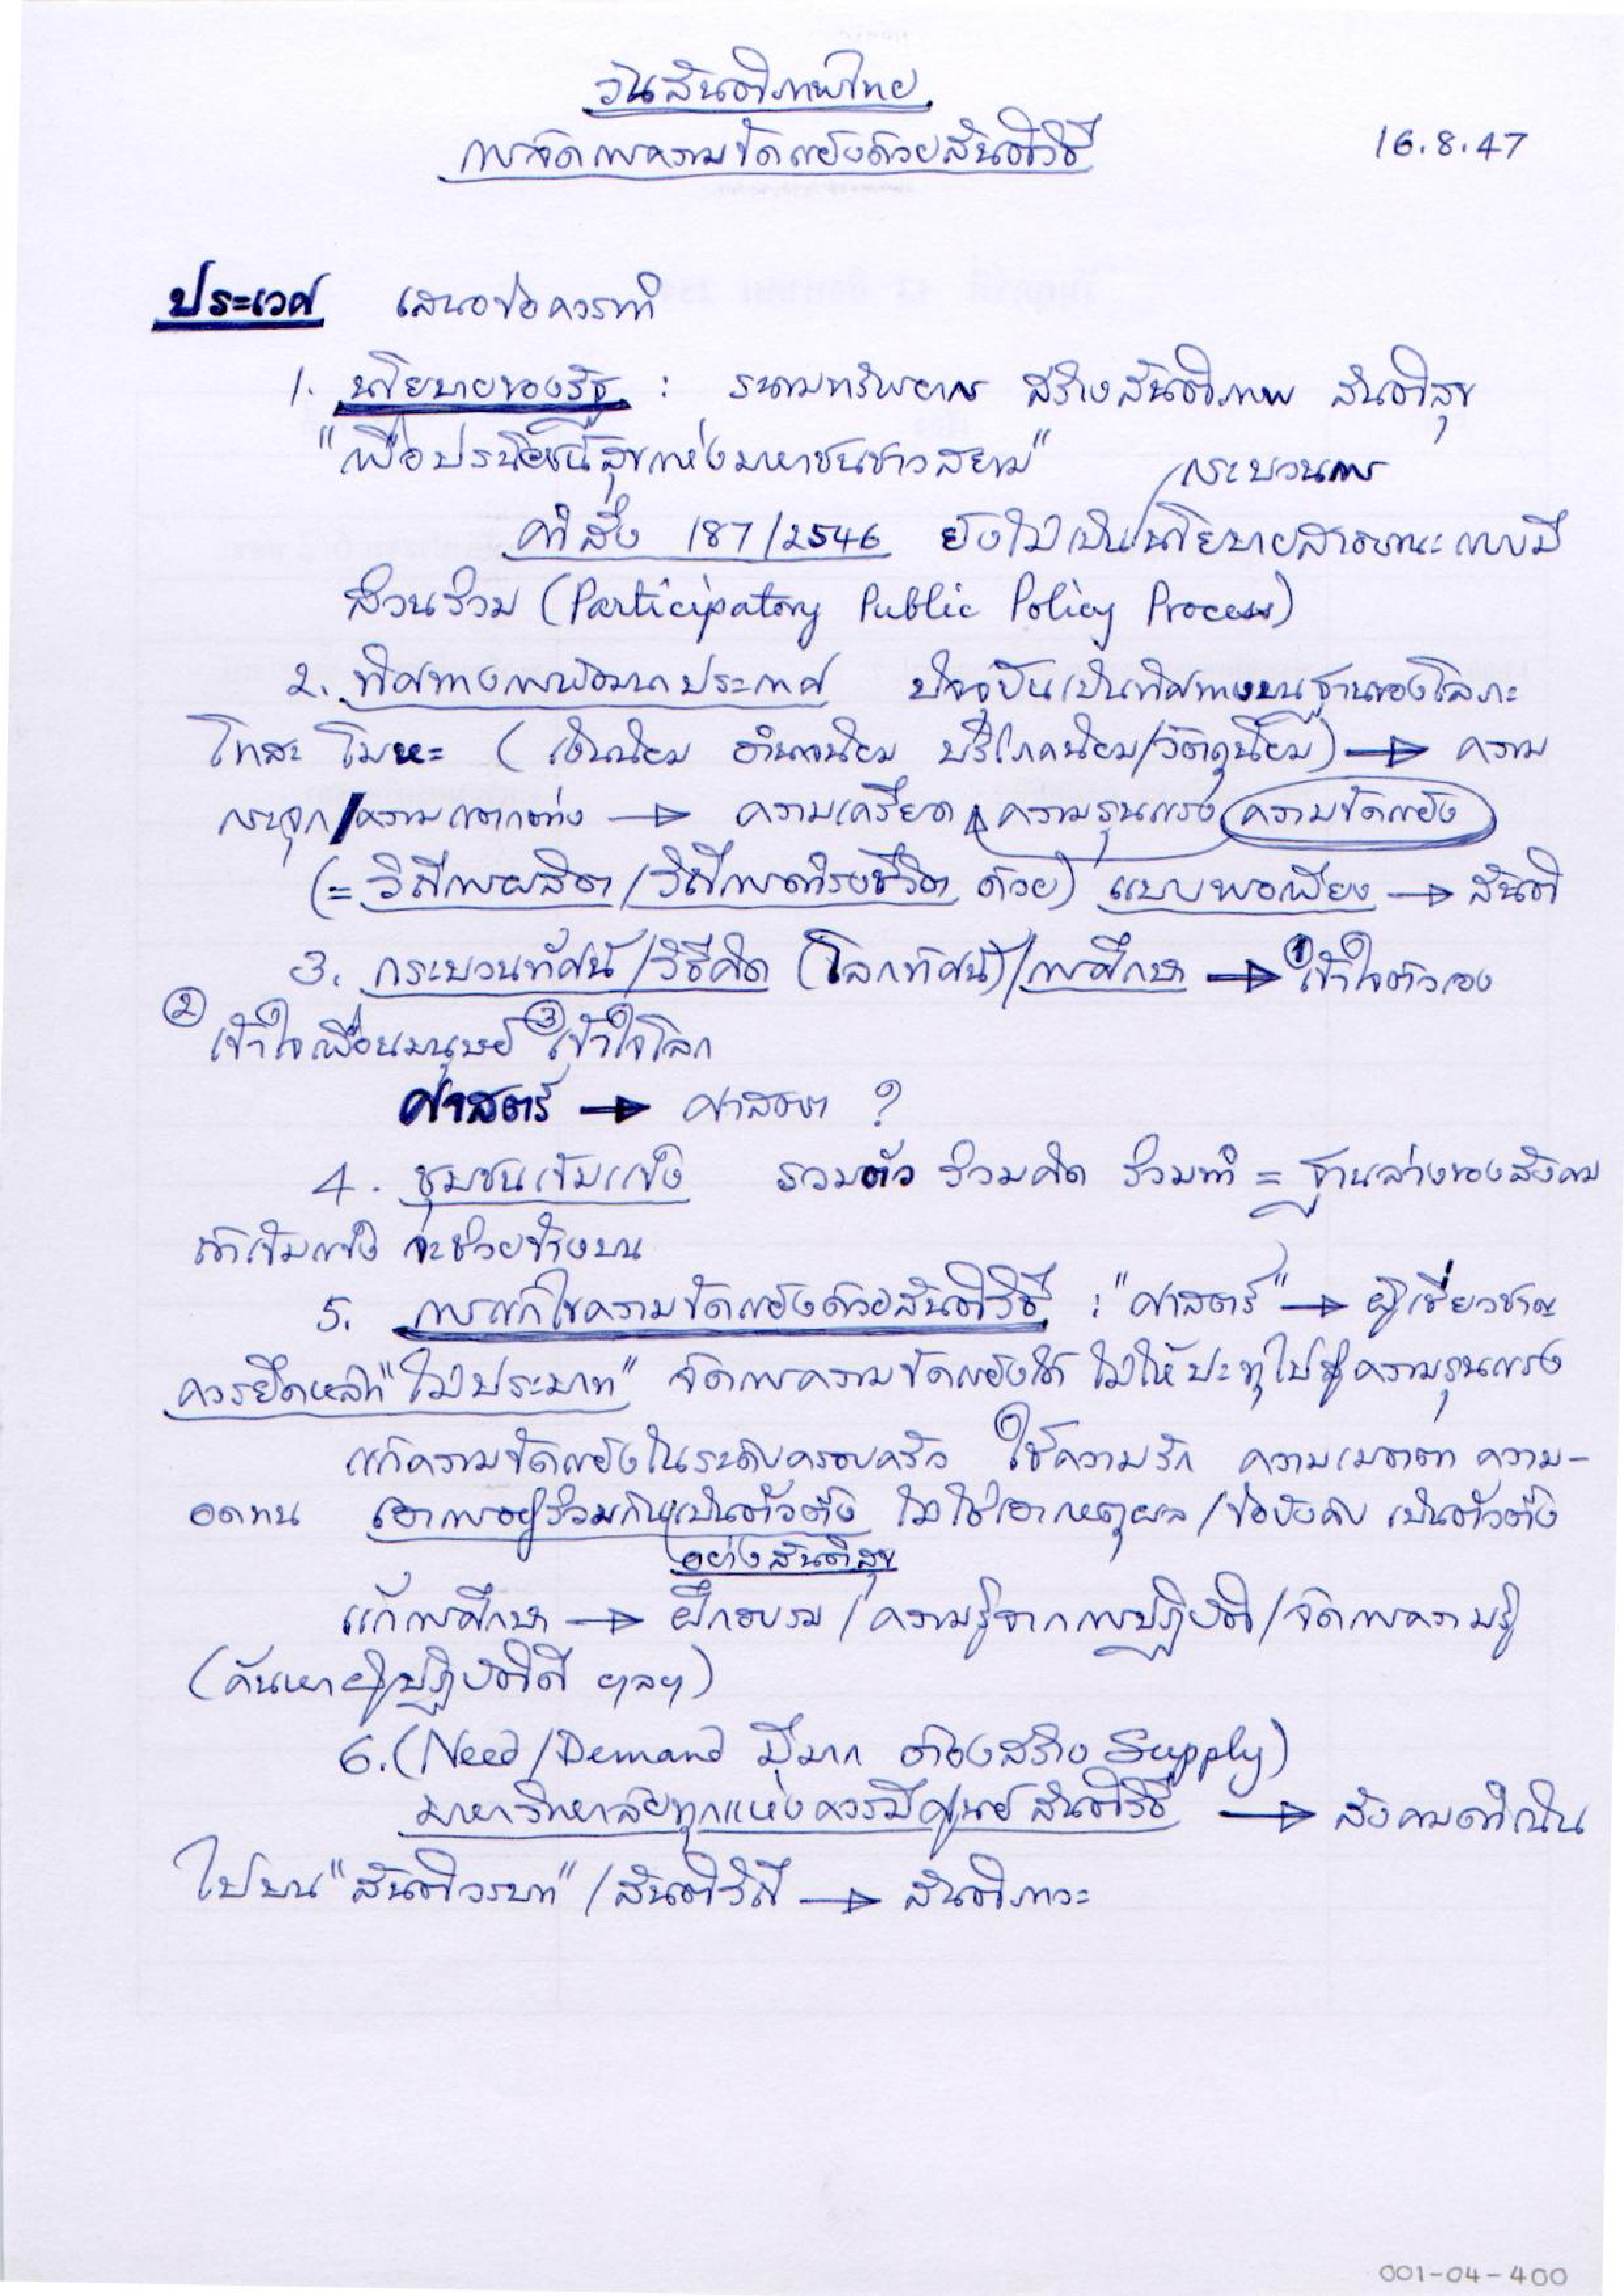 วันสันติภาพไทย
การจัดการความขัดแย้งด้วยสันติวิธี
16.8.47
ประเวศ เสนอข้อควรทำ
1. นโยบายของรัฐ : ระดมทรัพยากร สร้างสันติภาพ สันติสุข
"เพื่อประโยชน์สุขแห่งมหาชนชาวสยาม"
กระบวนการ
คำสั่ง 187/2546 ยังไม่เป็น/นโยบายสาธารณะแบบมี
ส่วนร่วม (Participatory Public Policy Process)
2. ทิศทางการพัฒนาประเทศ ปัจจุบันเป็นทิศทางบนฐานของโลภะ
โทสะ โมหะ (เงินนิยม อำนาจนิยม บริโภคนิยม/วัตถุนิยม) → ความ
กระจุก/ความแตกต่าง → ความเครียด ความรุนแรง ความขัดแย้ง
(= วิถีการผลิต/วิถีการดำรงชีวิต ด้วย) แบบพอเพียง → สันติ
3. กระบวนทัศน์/วิธีคิด (โลกทัศน์)/การศึกษา → ① เข้าใจตัวเอง
② เข้าใจเพื่อนมนุษย์ ③ เข้าใจโลก
ศาสตร์ → ศาสตรา ?
4. ชุมชนเข้มแข็ง รวมตัว ร่วมคิด ร่วมทำ = ฐานล่างของสังคม
ถ้าเข้มแข็ง จะช่วยข้างบน
5. การแก้ไขความขัดแย้งด้วยสันติวิธี : "ศาสตร์" → ผู้เชี่ยวชาญ
ควรยึดหลัก "ไม่ประมาท" จัดการความขัดแย้งได้ ไม่ให้ปะทุไปสู่ความรุนแรง
แก้ความขัดแย้งในระดับครอบครัว ใช้ความรัก ความเมตตา ความ-
อดทน เอาการอยู่ร่วมกันเป็นตัวตั้ง ไม่ใช่เอาเหตุผล/ข้อบังคับ เป็นตัวตั้ง
อย่างสันติสุข
แก้การศึกษา → ฝึกอบรม/ความรู้จากการปฏิบัติ/จัดการความรู้
(ค้นหาผู้ปฏิบัติดี ฯลฯ)
6. (Need/Demand มีมาก ต้องสร้าง Supply)
มหาวิทยาลัยทุกแห่งควรมีศูนย์สันติวิธี → สังคมดำเนิน
ไปบน "สันติวรบท"/สันติวิถี → สันติภาวะ
001-04-400